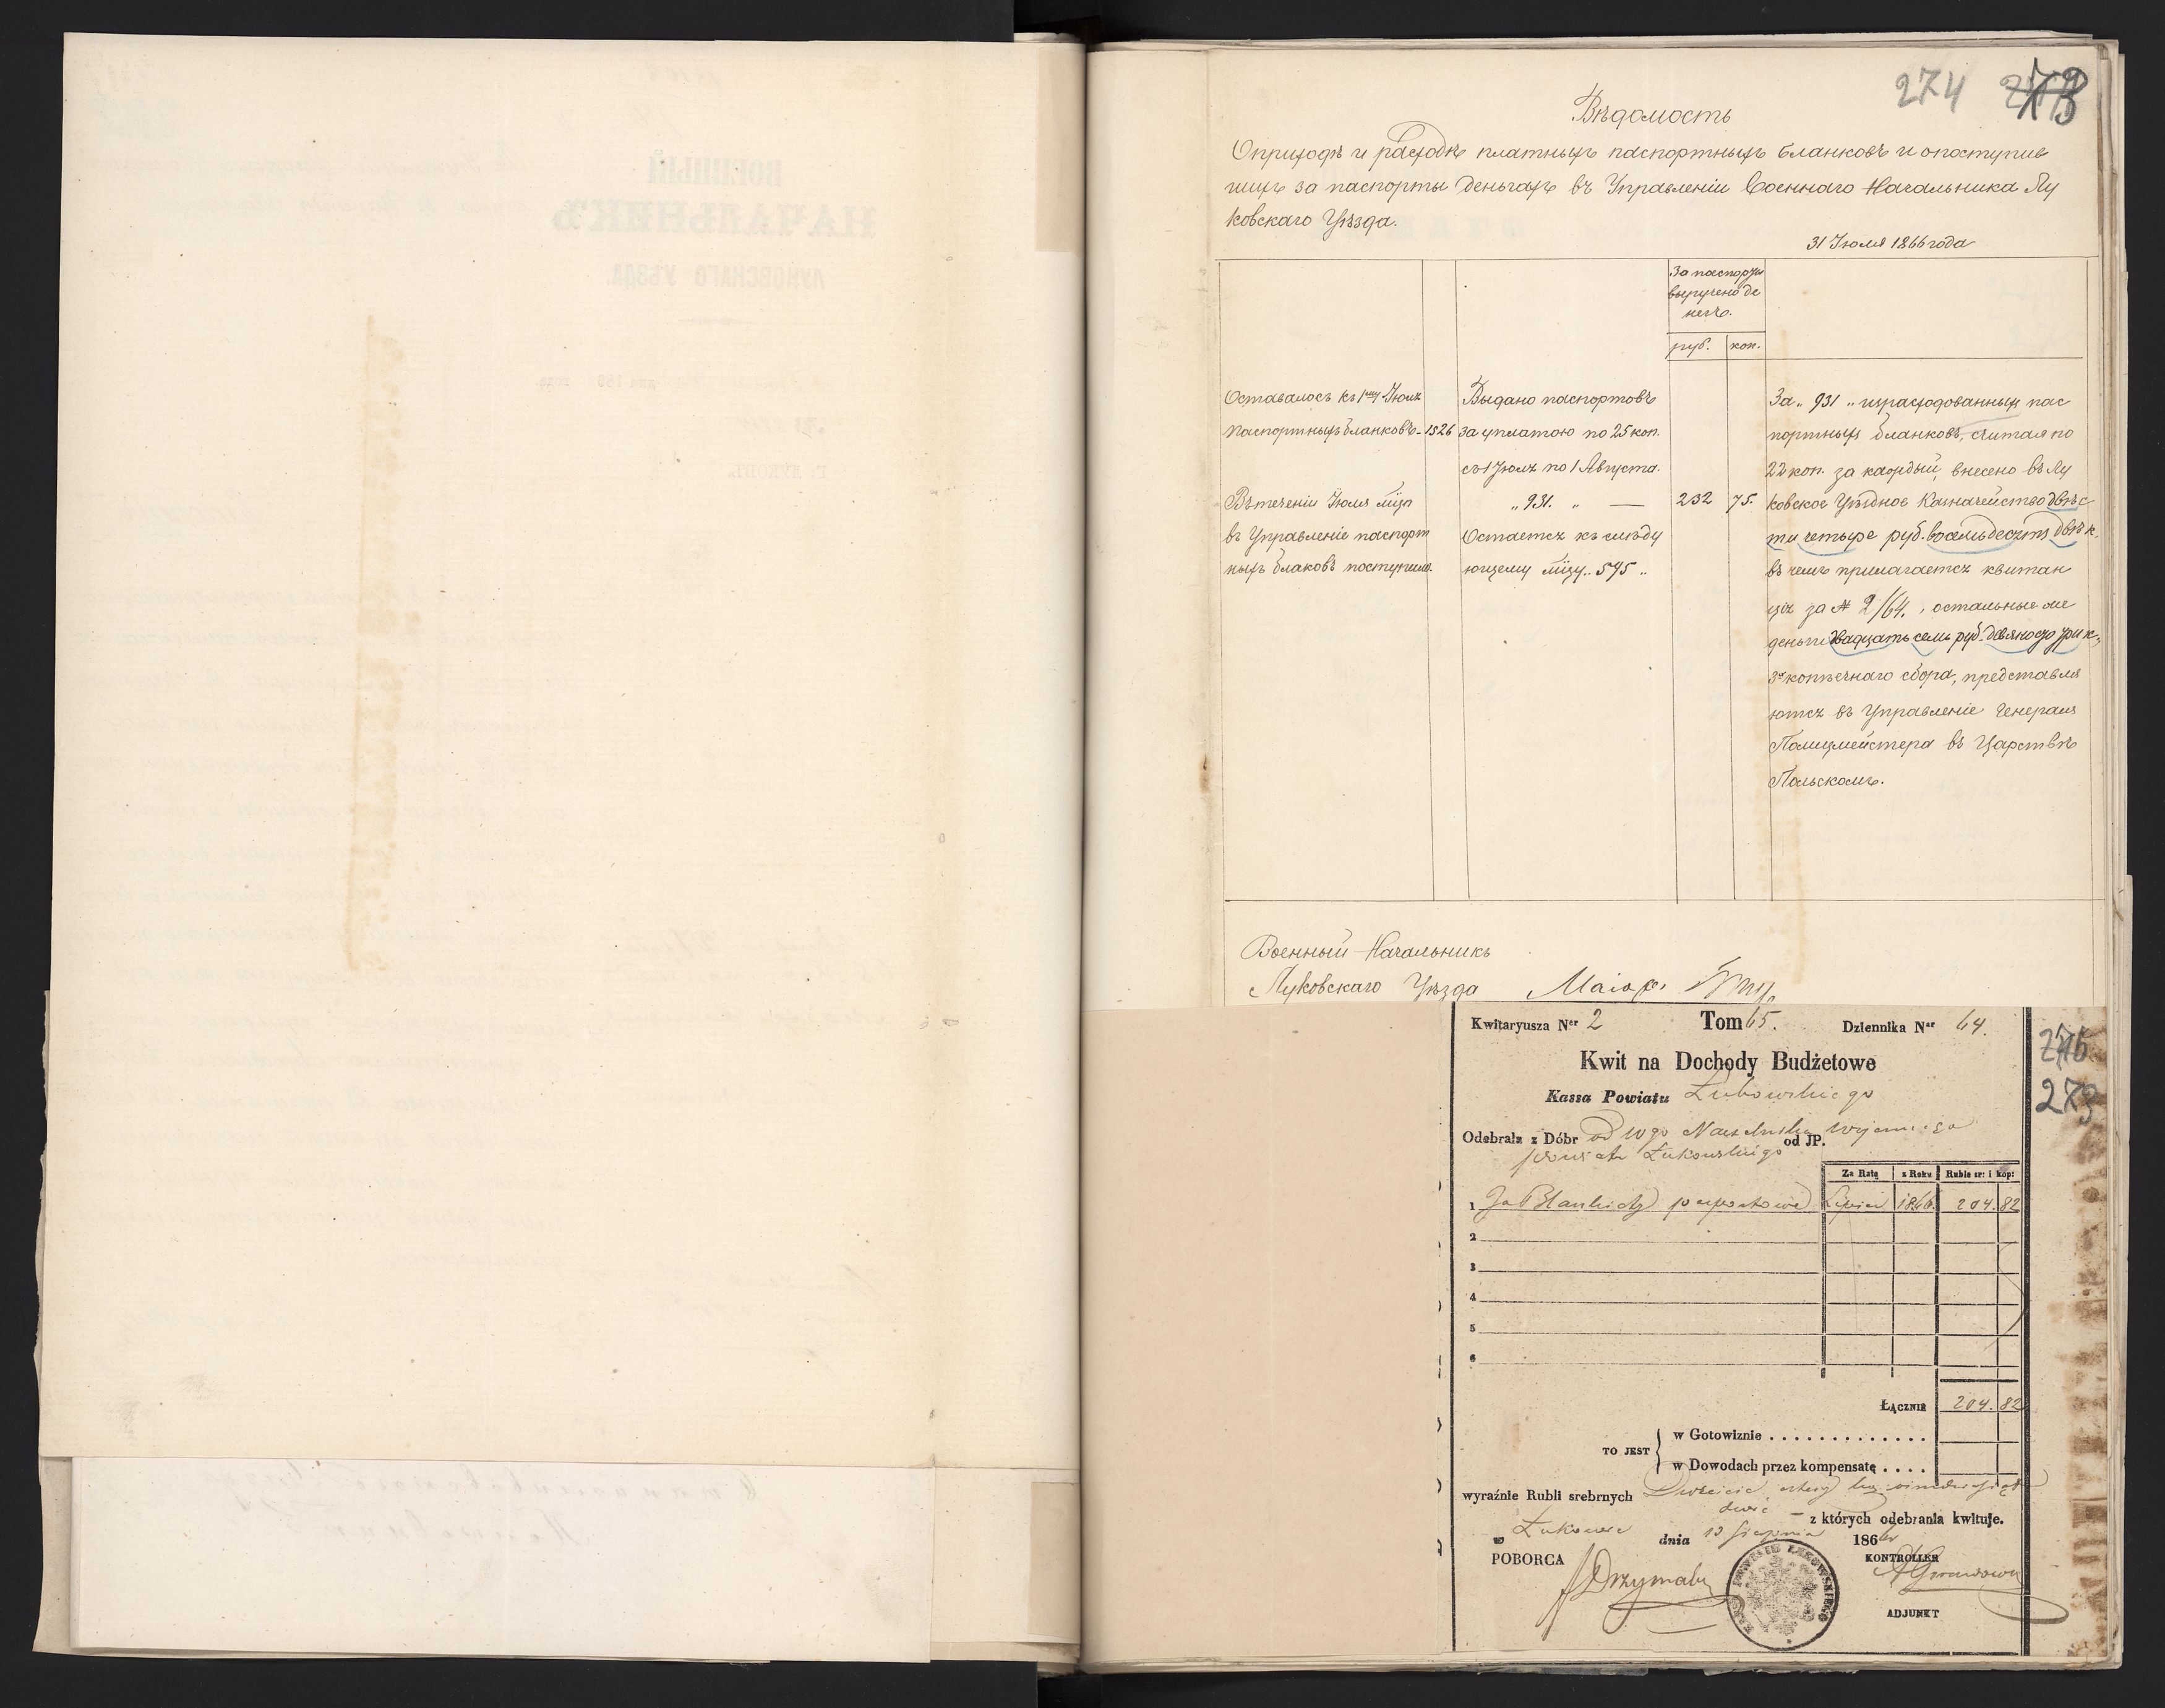 274
Вѣдомость
О приходѣ и расходѣ платныхъ паспортныхъ бланковъ и о поступив
шихъ за паспорты деньгахъ въ Управленіи Военнаго Начальника Лу
ковскаго Уѣзда.
31 Іюля 1866 года
За паспорты
выручено де
негъ.
руб. коп.
Оставалось къ 1му Іюля
паспортныхъ бланковъ - 1526
Въ теченіи Іюля мѣц
въ Управленіе паспорт
ныхъ блаковъ поступило.
Выдано паспортовъ
за уплатою по 25 коп.
съ 1 Іюля по 1 Августа.
„ 931. „ — 232 75.
Остается къ слѣду
ющему мѣцу.. 595 „
За „ 931 „ израсходованныхъ пас
портныхъ бланковъ, считая по
22 коп. за каждый, внесено въ Лу
ковское Уѣздное Казначейство двѣс
ти четыре руб. восемьдесятъ двѣ к.
въ чемъ прилагается квитан
ція за № 2/64., остальные же
деньги двадцать семь руб. девяносто три к.
3х копѣечнаго сбора, представля
ются въ Управленіе Генералъ
Полицмейстера въ Царствѣ
Польскомъ.
Военный Начальникъ
Луковскаго Уѣзда Маіоръ
Kwitaryusza Ner 2 Tom 65. Dziennika Nar 64.
273
Kwit na Dochody Budżetowe
Kassa Powiatu Łukowskiego
Odebrała z Dóbr od Wgo Naczelnika Wojennego od JP.
powiatu Łukowskiego
Za Ratę z Roku Ruble sr: i kop:
1 Za Blankiety paszportowe Lipiec 1866. 204. 82
2
3
4
5
6
Łącznie 204. 82
TO JEST
w Gotowiznie . . . . . . . . . . . . .
w Dowodach przez kompensatę . . . .
wyraźnie Rubli srebrnych Dwieście cztery kop. ośmdziesiąt
dwie — z których odebrania kwituje.
w Łukowie dnia 13 Sierpnia 1866
POBORCA
KONTROLLER
Drzymała
ADJUNKT